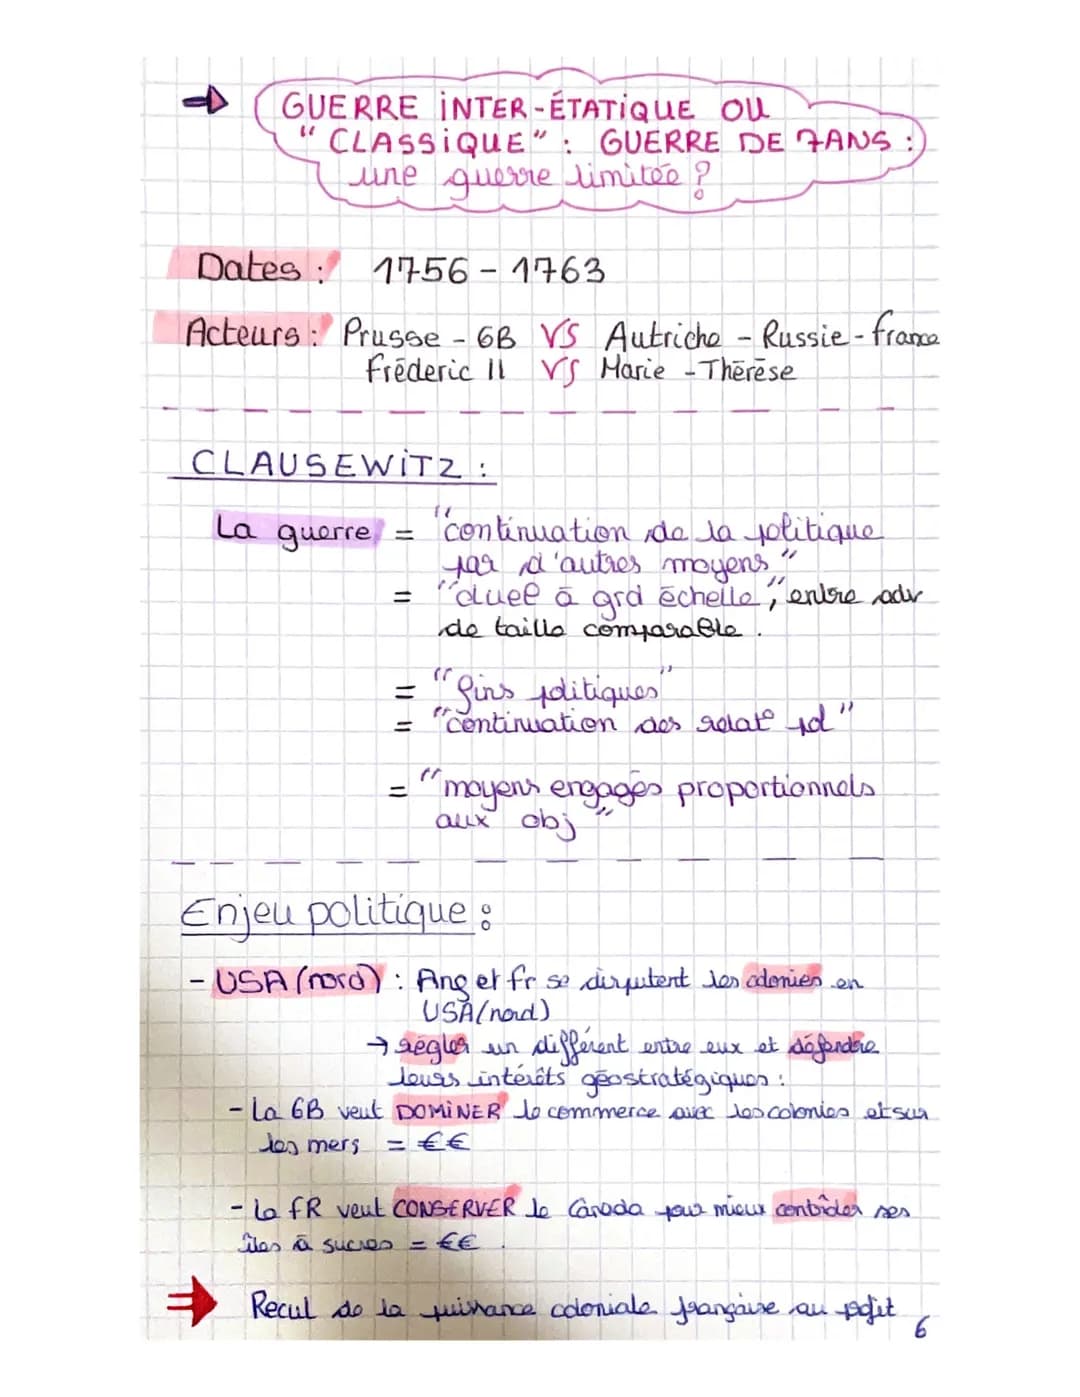 GUERRE INTER-ÉTATIQUE OU
"CLASSIQUE" : GUERRE DE 7ANS :
une guerre limitée ?
Dates : 1756 - 1763
Acteurs : Prusse - GB VS Autriche - Russie - france
Fréderic II VS Marie - Thérèse
CLAUSEWITZ :
La guerre = "continuation de la politique
par d'autres moyens"
= "duel à grd échelle", entre adv
de taille comparable.
= "fins politiques"
= "continuation des relat° pol"
= "moyens engagés proportionnels
aux obj"
Enjeu politique :
- USA (nord) : Ang et fr se disputent les colonies en
USA (nord)
→ régler un différent entre eux et défendre
leurs intérêts géostratégiques :
- La GB veut DOMINER le commerce avec les colonies et sur
les mers = €€
- La FR veut CONSERVER le Canada pour mieux contrôler ses
îles à sucres = €€.
⇒ Recul de la puissance coloniale française au profit
6